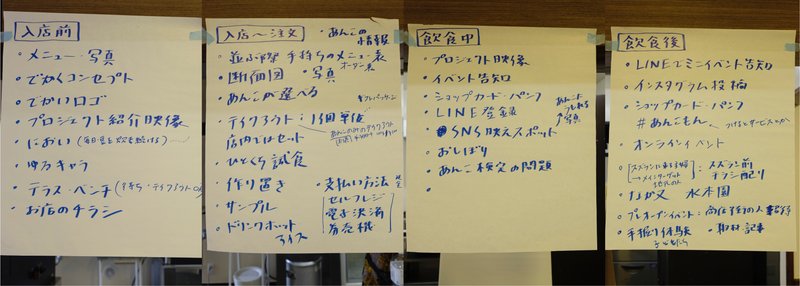 入店前
・メニュー・写真
・でかくコンセプト
・でかいロゴ
・プロジェクト紹介映像
・におい
・ゆるキャラ
・テラス・ベンチ
・お店のチラシ
入店〜注文
・あんこの情報
・並ぶ際 手持ちのメニュー表
オーダー表
・断面図 ・写真
・あんこが選べる
・テイクアウト:1個単位
店内ではセット
・ひとくち試食
・作り置き
・サンプル
・ドリンクホット
アイス
・支払い方法
セルフレジ
電子決済
券売機
飲食中
・プロジェクト映像
・イベント告知
・ショップカード・パンフ
・LINE登録
・SNS映えスポット
・おしぼり
・あんこ検定の問題
・
写真
飲食後
・LINEでミニイベント告知
・インスタグラム投稿
・ショップカード・パンフ
#あんこもん
・オンラインイベント
スズラン前
チラシ配り
・なか又 水本園
・プレオープンイベント:商店街の人
・手掘り体験
・取材記事